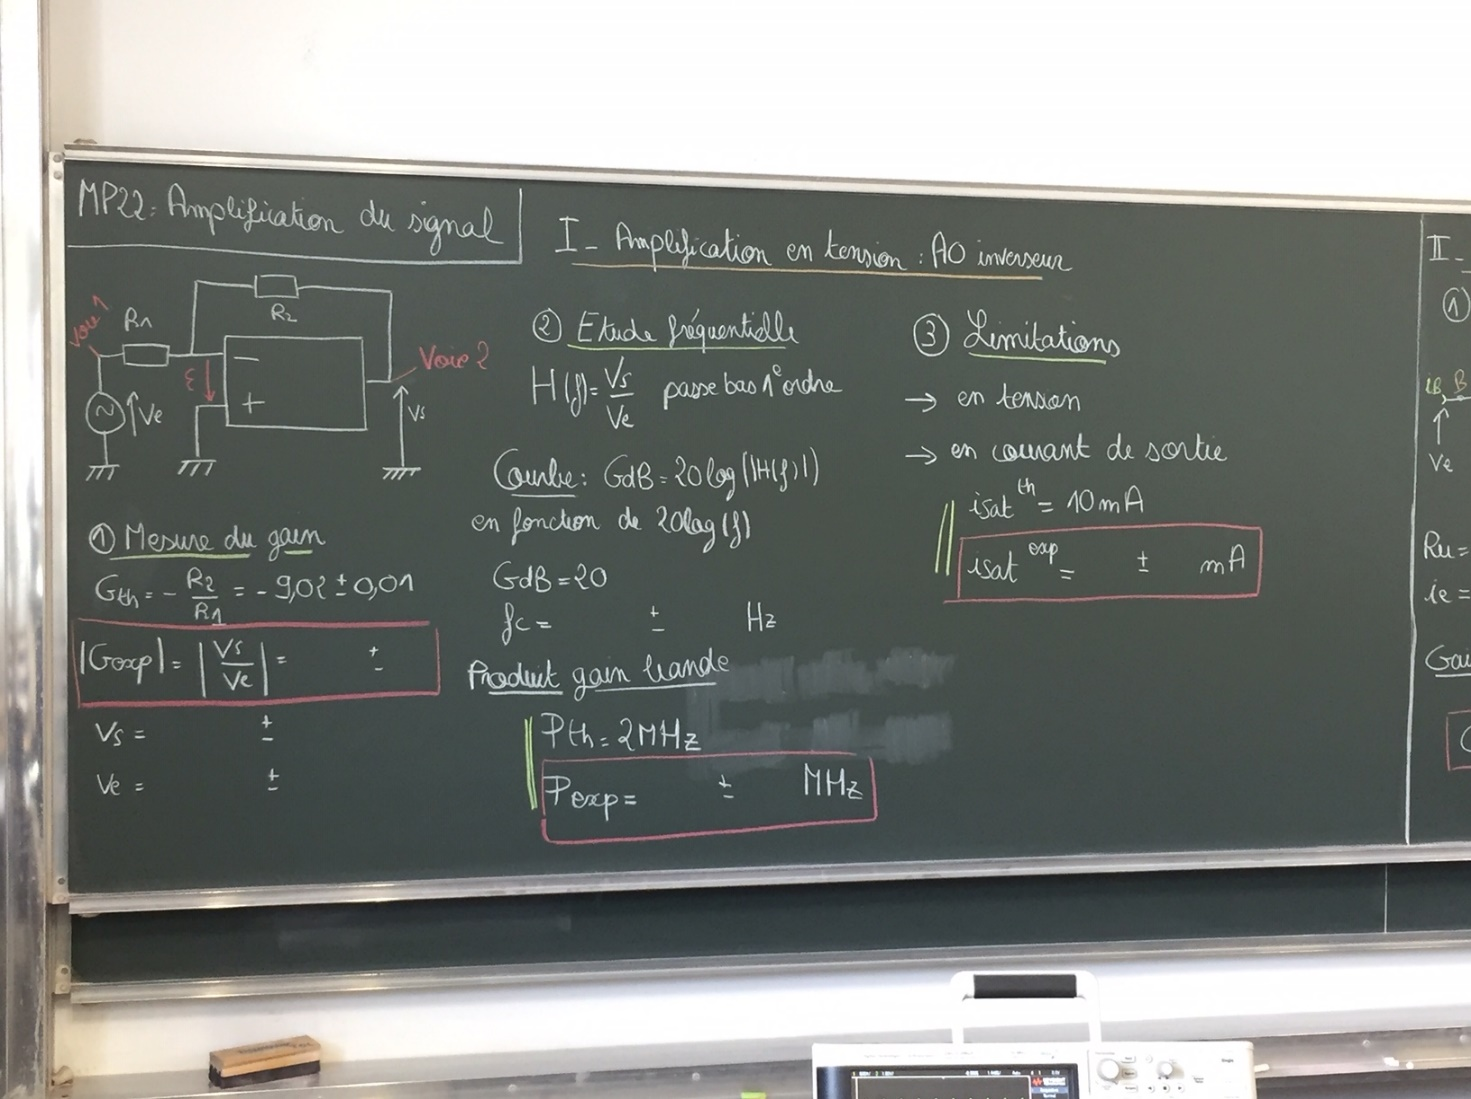 MP22: Amplification du signal
I - Amplification en tension : AO inverseur
Voie 1
R1
R2
ε
-
+
Voie 2
Ve
Vs
① Mesure du gain
Gth = - R2/R1 = - 9,02 ± 0,01
|Gexp| = |Vs/Ve| = ±
Vs = ±
Ve = ±
② Etude fréquentielle
H(f) = Vs/Ve passe bas 1e ordre
Courbe : GdB = 20log(|H(f)|)
en fonction de 20log(f)
GdB = 20
fc = ± Hz
Produit gain bande
Pth = 2MHz
Pexp = ± MHz
③ Limitations
→ en tension
→ en courant de sortie
isat th = 10 mA
isat exp = ± mA
II -
①
iB B
Ve
Ru =
ie =
Gai